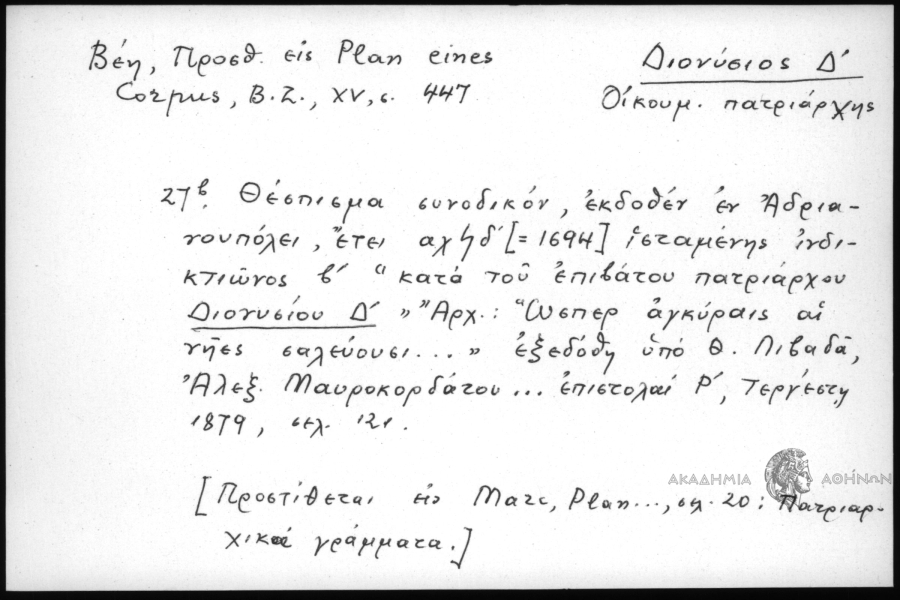 Βέη, Προσθ. εἰς Plan eines
Corpus, B.Z., XV, σ. 447
Διονύσιος Δ΄
Οἰκουμ. πατριάρχης
27β. Θέσπισμα συνοδικόν, ἐκδοθέν ἐν Ἀδρια-
νουπόλει, ἔτει αχϟδ΄ [= 1694] ἱσταμένης ἰνδι-
κτιῶνος β΄ "κατά τοῦ ἐπιβάτου πατριάρχου
Διονυσίου Δ΄ » Ἀρχ.: "Ὥσπερ ἀγκύραις αἱ
νῆες σαλεύουσι... » ἐξεδόθη ὑπό Θ. Λιβαδᾶ,
Ἀλεξ. Μαυροκορδάτου ... ἐπιστολαί Ρ΄, Τεργέστῃ
1879, σελ. 121.
[Προστίθεται εἰς Marc, Plan..., σελ. 20: Πατριαρ-
χικά γράμματα.]
ΑΚΑΔΗΜΙΑ ΑΘΗΝΩΝ